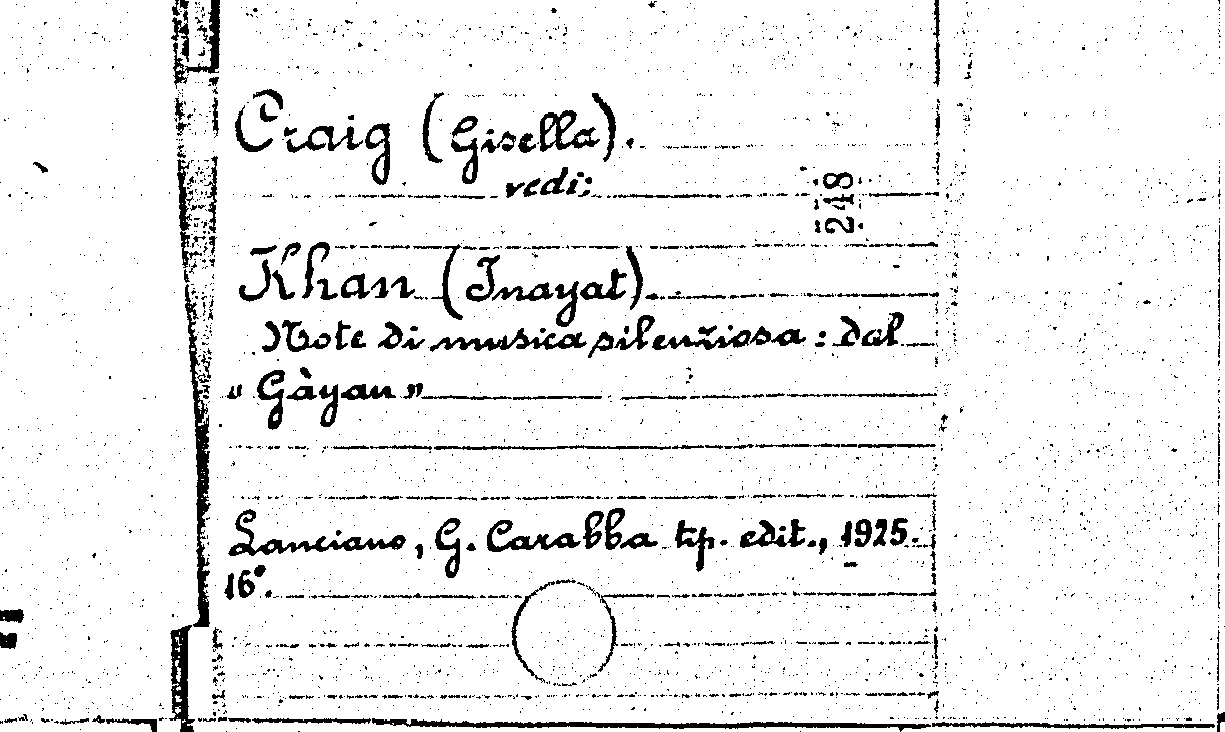 Craig (Gisella).
vedi:
248
Khan (Inayat).
Note di musica silenziosa: dal
"Gàyan"
Lanciano, G. Carabba tip. edit., 1925.
16°.